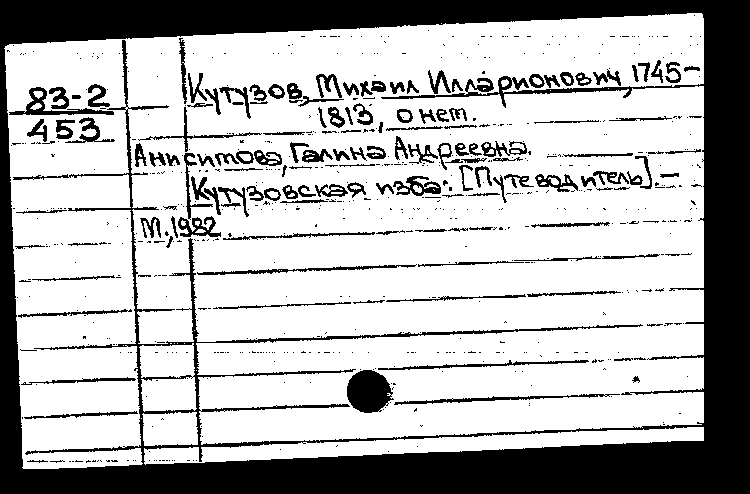 83-2
453
Кутузов, Михаил Илларионович, 1745-
1813, о нем.
Анисимова, Галина Андреевна.
Кутузовская изба: [Путеводитель].—
М., 1982.